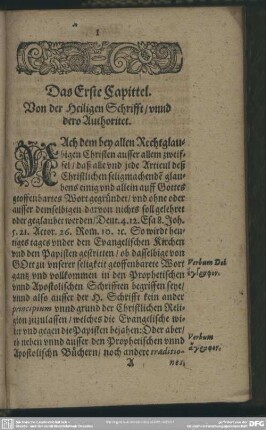 1
Das Erste Capittel.
Von der Heiligen Schrifft/ vnnd
dero Authoritet.
NAch dem bey allen Rechtglau-
bigen Christen ausser allem zweif-
fel/ daß alle vnd jede Articul deß
Christlichen seligmachendē glau-
bens einig vnd allein auff Gottes
geoffenbartes Wort gegründet/ vnd ohne oder
ausser demselbigen darvon nichts soll gelehret
oder geglaubet werden/ Deut. 4. 12. Esa 8. Joh.
5. 21. Actor. 26. Rom. 10. ꝛc. So wirdt heu-
tiges tages vnder den Evangelischen Kirchen
vnd den Papisten gestritten/ ob dasselbige von
GOtt zu vnserer seligkeit geoffenbarete Wort
gang vnd vollkommen in den Prophetischen
vnnd Apostolischen Schrifften begriffen seye/
vnnd also ausser der H. Schrifft kein ander
principium vnnd grund der Christlichen Reli-
gion zuzulassen/ welches die Evangelische wi-
der vnd gegen die Papisten bejahen: Oder aber/
ob neben vnnd ausser den Prophetischen vnnd
Apostolischn Büchern/ noch andere traditio-
A
nes,
Verbum Dei
ἔγγραφον.
Verbum
ἄγραφον.